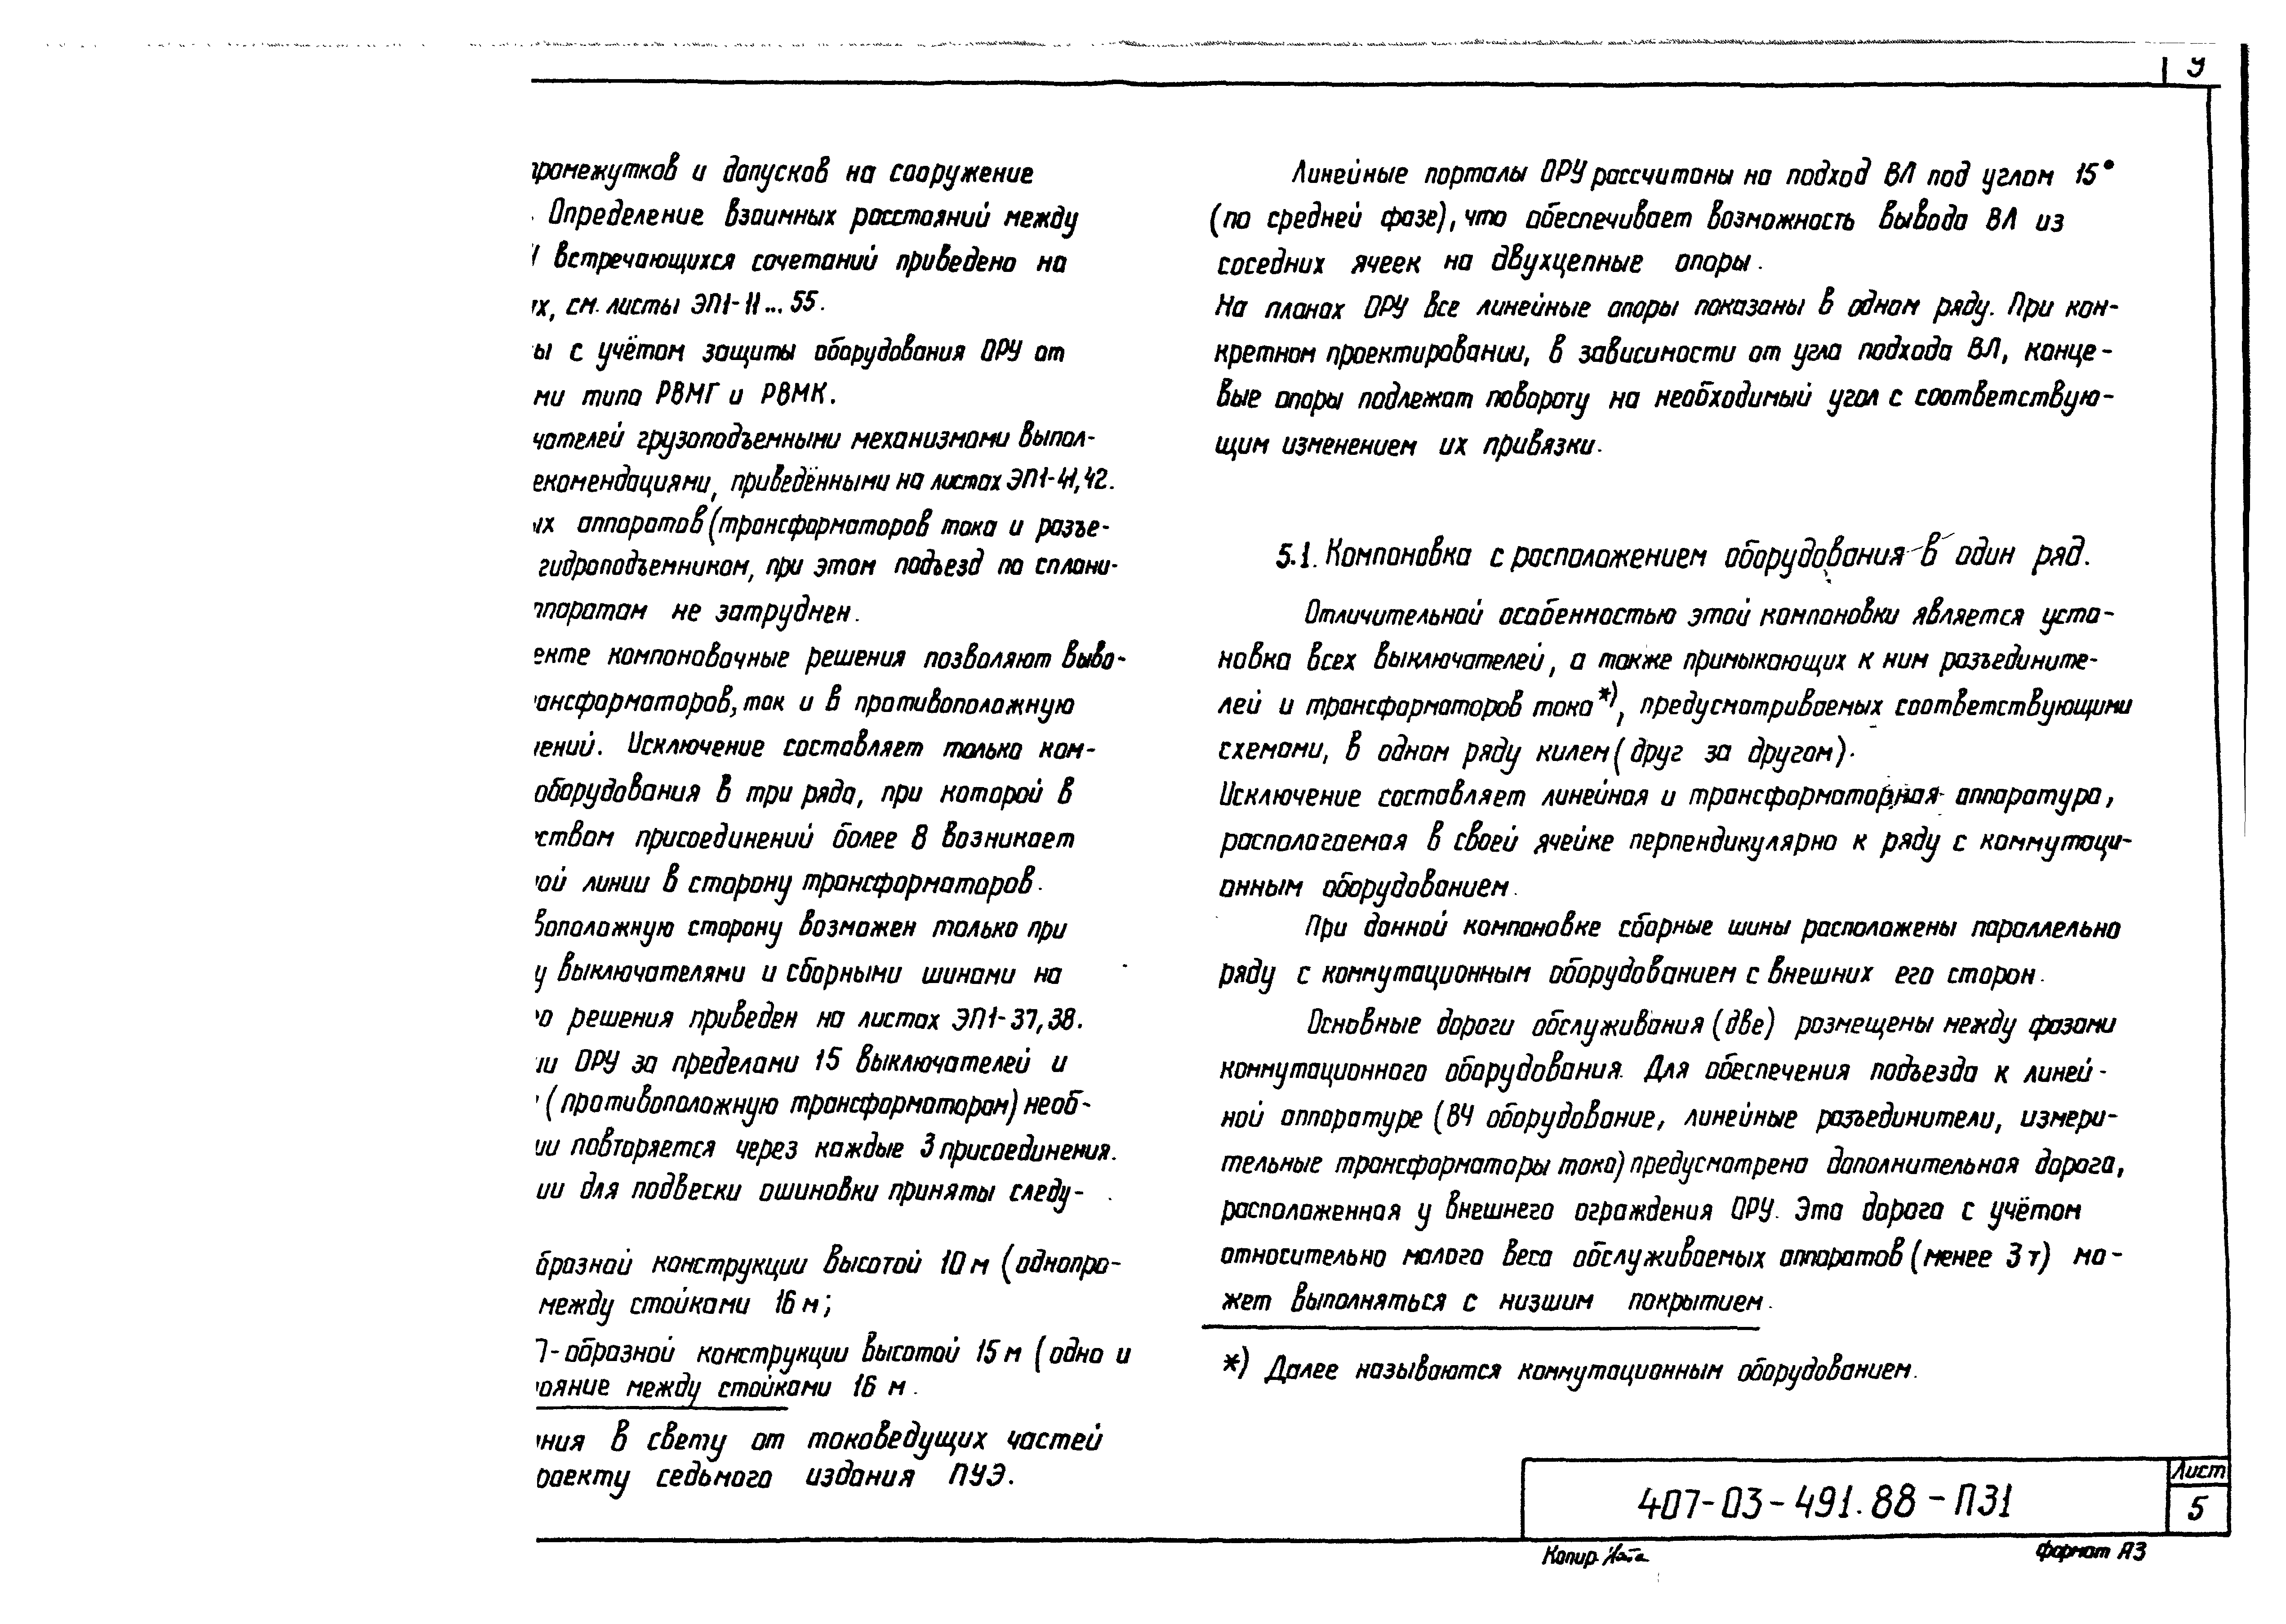 9
промежутков и допусков на сооружение
. Определение взаимных расстояний между
встречающихся сочетаний приведено на
их, см. листы ЭП1-11... 55.
ы с учётом защиты оборудования ОРУ от
ми типа РВМГ и РВМК.
чателей грузоподъемными механизмами выпол-
екомендациями, приведёнными на листах ЭП1-41,42.
ых аппаратов (трансформаторов тока и разъе-
гидроподъемником, при этом подъезд по сплани-
ппаратам не затруднен.
екте компоновочные решения позволяют выво-
ансформаторов, так и в противоположную
нений. Исключение составляет только ком-
оборудования в три ряда, при которой в
еством присоединений более 8 возникает
ой линии в сторону трансформаторов.
воположную сторону возможен только при
у выключателями и сборными шинами на
го решения приведен на листах ЭП1-37,38.
ии ОРУ за пределами 15 выключателей и
(противоположную трансформаторам) необ-
ии повторяется через каждые 3 присоединения.
ии для подвески ошиновки приняты следу-
образной конструкции высотой 10 м (однопро-
между стойками 16 м;
П-образной конструкции высотой 15 м (одно и
тояние между стойками 16 м.
ния в свету от токоведущих частей
роекту седьмого издания ПУЭ.
Линейные порталы ОРУ рассчитаны на подход ВЛ под углом 15°
(по средней фазе), что обеспечивает возможность вывода ВЛ из
соседних ячеек на двухцепные опоры.
На планах ОРУ все линейные опоры показаны в одном ряду. При кон-
кретном проектировании, в зависимости от угла подхода ВЛ, конце-
вые опоры подлежат повороту на необходимый угол с соответствую-
щим изменением их привязки.
5.1. Компоновка с расположением оборудования в один ряд.
Отличительной особенностью этой компоновки является уста-
новка всех выключателей, а также примыкающих к ним разъедините-
лей и трансформаторов тока*), предусматриваемых соответствующими
схемами, в одном ряду килем (друг за другом).
Исключение составляет линейная и трансформаторная аппаратура,
располагаемая в своей ячейке перпендикулярно к ряду с коммутаци-
онным оборудованием.
При данной компоновке сборные шины расположены параллельно
ряду с коммутационным оборудованием с внешних его сторон.
Основные дороги обслуживания (две) размещены между фазами
коммутационного оборудования. Для обеспечения подъезда к линей-
ной аппаратуре (ВЧ оборудование, линейные разъединители, измери-
тельные трансформаторы тока) предусмотрена дополнительная дорога,
расположенная у внешнего ограждения ОРУ. Эта дорога с учётом
относительно малого веса обслуживаемых аппаратов (менее 3 т) мо-
жет выполняться с низшим покрытием.
*) Далее называются коммутационным оборудованием.
407-03-491.88-ПЗ1
Лист
5
Копир.
Формат А3